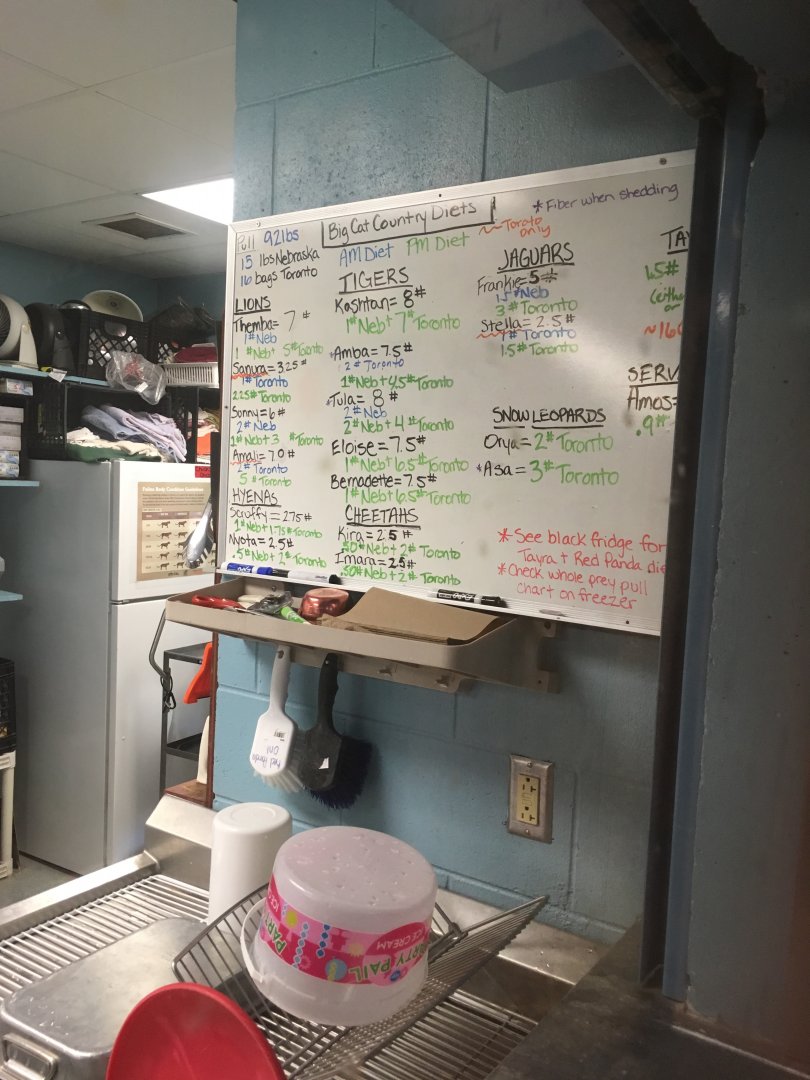 Big Cat Country Diets
* Fiber when shedding
Pull 92lbs
15 lbs Nebraska
16 bags Toronto
AM Diet PM Diet
~~ Toronto
only
LIONS
Themba= 7 #
1#Neb
1 #Neb+ 5#Toronto
Sanura= 3.25#
1#Toronto
2.25# Toronto
Sonny= 6#
2#Neb
1#Neb+3 #Toronto
Amali= 7.0 #
2#Toronto
5 #Toronto
HYENAS
Scruffy= 2.75#
1#Neb+1.75#Toronto
Nyota= 2.5#
.5#Neb+2#Toronto
TIGERS
Kashtan= 8#
1#Neb+ 7#Toronto
*Amba= 7.5#
2#Toronto
1#Neb+4.5#Toronto
*Tula= 8#
2#Neb
2#Neb+4#Toronto
Eloise= 7.5#
1#Neb+6.5#Toronto
Bernadette= 7.5#
1#Neb+6.5#Toronto
CHEETAHS
Kira= 2.5 #
.50#Neb+2#Toronto
Imara= 2.5#
.50#Neb+2#Toronto
JAGUARS
Frankie= 5#
1.5#Neb
3#Toronto
Stella= 2.5#
1#Toronto
1.5#Toronto
SNOW LEOPARDS
Orya= 2#Toronto
*Asa= 3#Toronto
TA
1.5#
SERV
Amos=
.9#
* See black fridge for
Tayra + Red Panda die
* Check whole prey pull
chart on freezer
Feline Body Condition Guidelines
Red Panda
Only
EXPO
PARTY PAIL
ICE CREAM